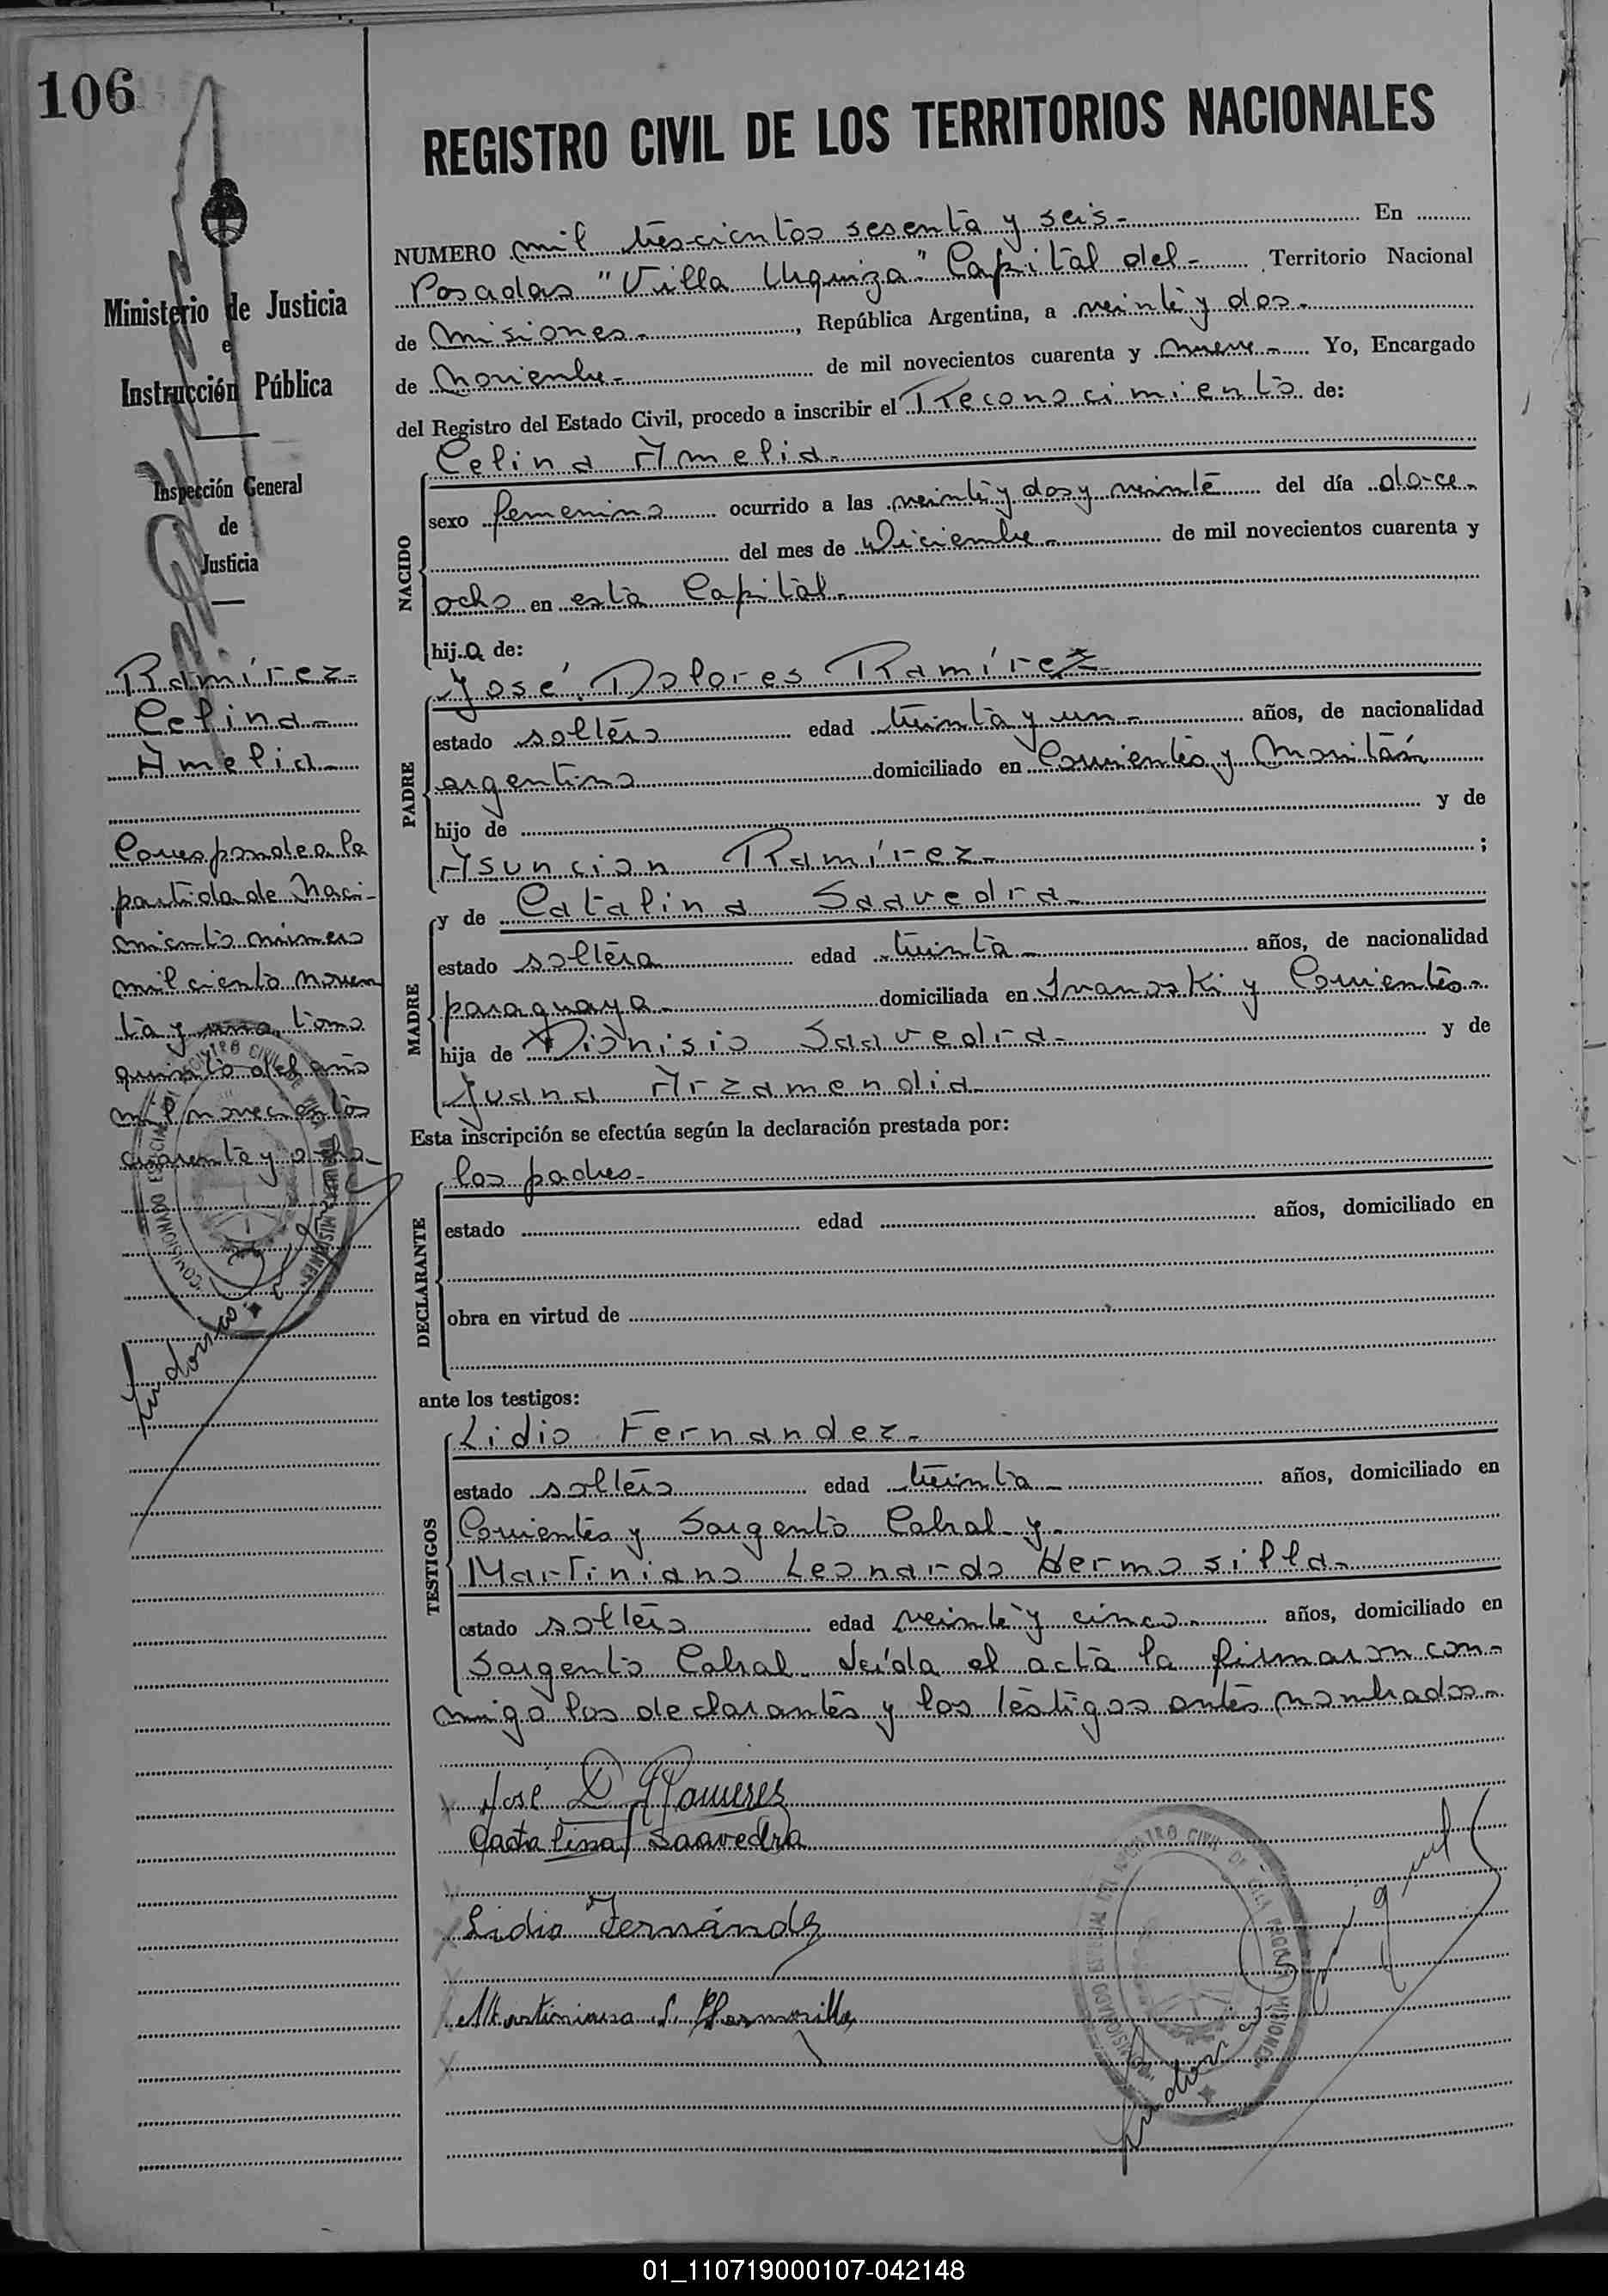 106
REGISTRO CIVIL DE LOS TERRITORIOS NACIONALES
Ministerio de Justicia
e
Instrucción Pública
Inspección General
de
Justicia
Ramírez-
Celina-
Amelia-
Corresponde a la
partida de Naci-
miento número
mil ciento noven
ta y uno, tomo
quinto del año
mil novecientos
cuarenta y ocho-
NUMERO mil trescientos sesenta y seis- En
Posadas "Villa Urquiza" Capital del- Territorio Nacional
de Misiones- , República Argentina, a veinte y dos-
de Noviembre- de mil novecientos cuarenta y nueve- Yo, Encargado
del Registro del Estado Civil, procedo a inscribir el Reconocimiento de:
NACIDO
Celina Amelia-
sexo femenino ocurrido a las veinte y dos y veinte del día doce-
del mes de Diciembre- de mil novecientos cuarenta y
ocho en esta Capital-
hija de:
PADRE
José Dolores Ramírez-
estado soltero edad treinta y un- años, de nacionalidad
argentino domiciliado en Corrientes y
hijo de y de
Asuncion Ramírez- ;
MADRE
y de Catalina Saavedra-
estado soltera edad treinta- años, de nacionalidad
paraguaya- domiciliada en Ivanoski y Corrientes-
hija de Dionisio Saavedra- y de
Juana Arzamendia-
Esta inscripción se efectúa según la declaración prestada por:
DECLARANTE
los padres-
estado edad años, domiciliado en
obra en virtud de
ante los testigos:
TESTIGOS
Lidio Fernandez-
estado soltero edad treinta- años, domiciliado en
Corrientes y Sargento Cabral y-
Martiniano Leonardo Hermosilla-
estado soltero edad veinte y cinco- años, domiciliado en
Sargento Cabral. Leída el acta la firmaron con-
migo los declarantes y los testigos antes nombrados-
José D Rameres
Catalina Saavedra
Lidio Fernández
Martiniano L. Hermosilla
01_110719000107-042148